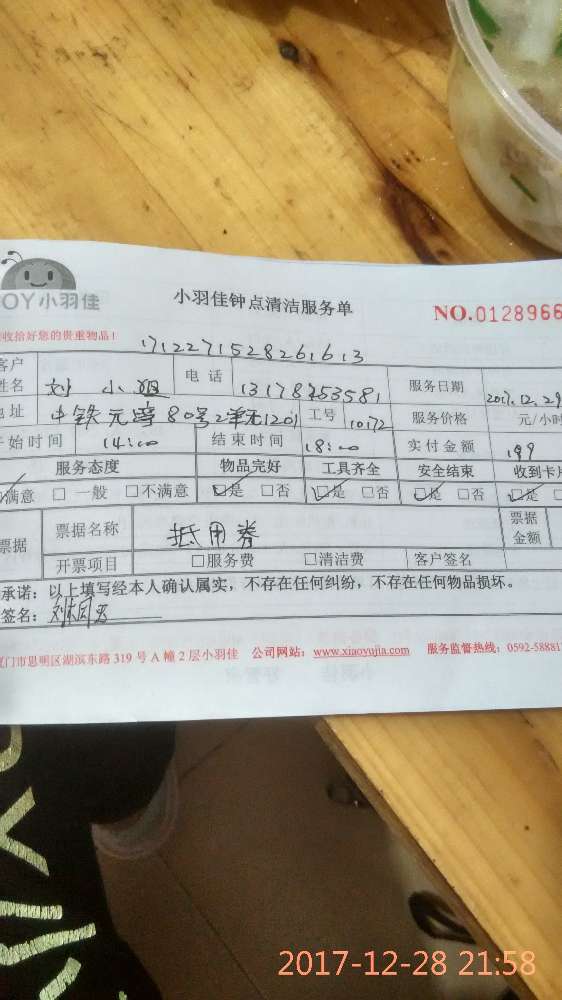 OY小羽佳
小羽佳钟点清洁服务单
NO.0128966
收拾好您的贵重物品！
171227152826 1613
客户姓名 刘小姐 电话 13178953581 服务日期 2017.12.29
地址 中铁元湾80号2单元1201 工号 10172 服务价格 元/小时
开始时间 14:00 结束时间 18:00 实付金额 199
服务态度 物品完好 工具齐全 安全结束 收到卡片
满意 □ 一般 □不满意 是 □否 是 □否 是 □否 是
票据 票据名称 抵用券 票据金额
开票项目 □服务费 □清洁费 客户签名
承诺：以上填写经本人确认属实，不存在任何纠纷，不存在任何物品损坏。
签名：
厦门市思明区湖滨东路 319 号 A 幢 2 层小羽佳 公司网站：www.xiaoyujia.com 服务监督热线：0592-58881
2017-12-28 21:58